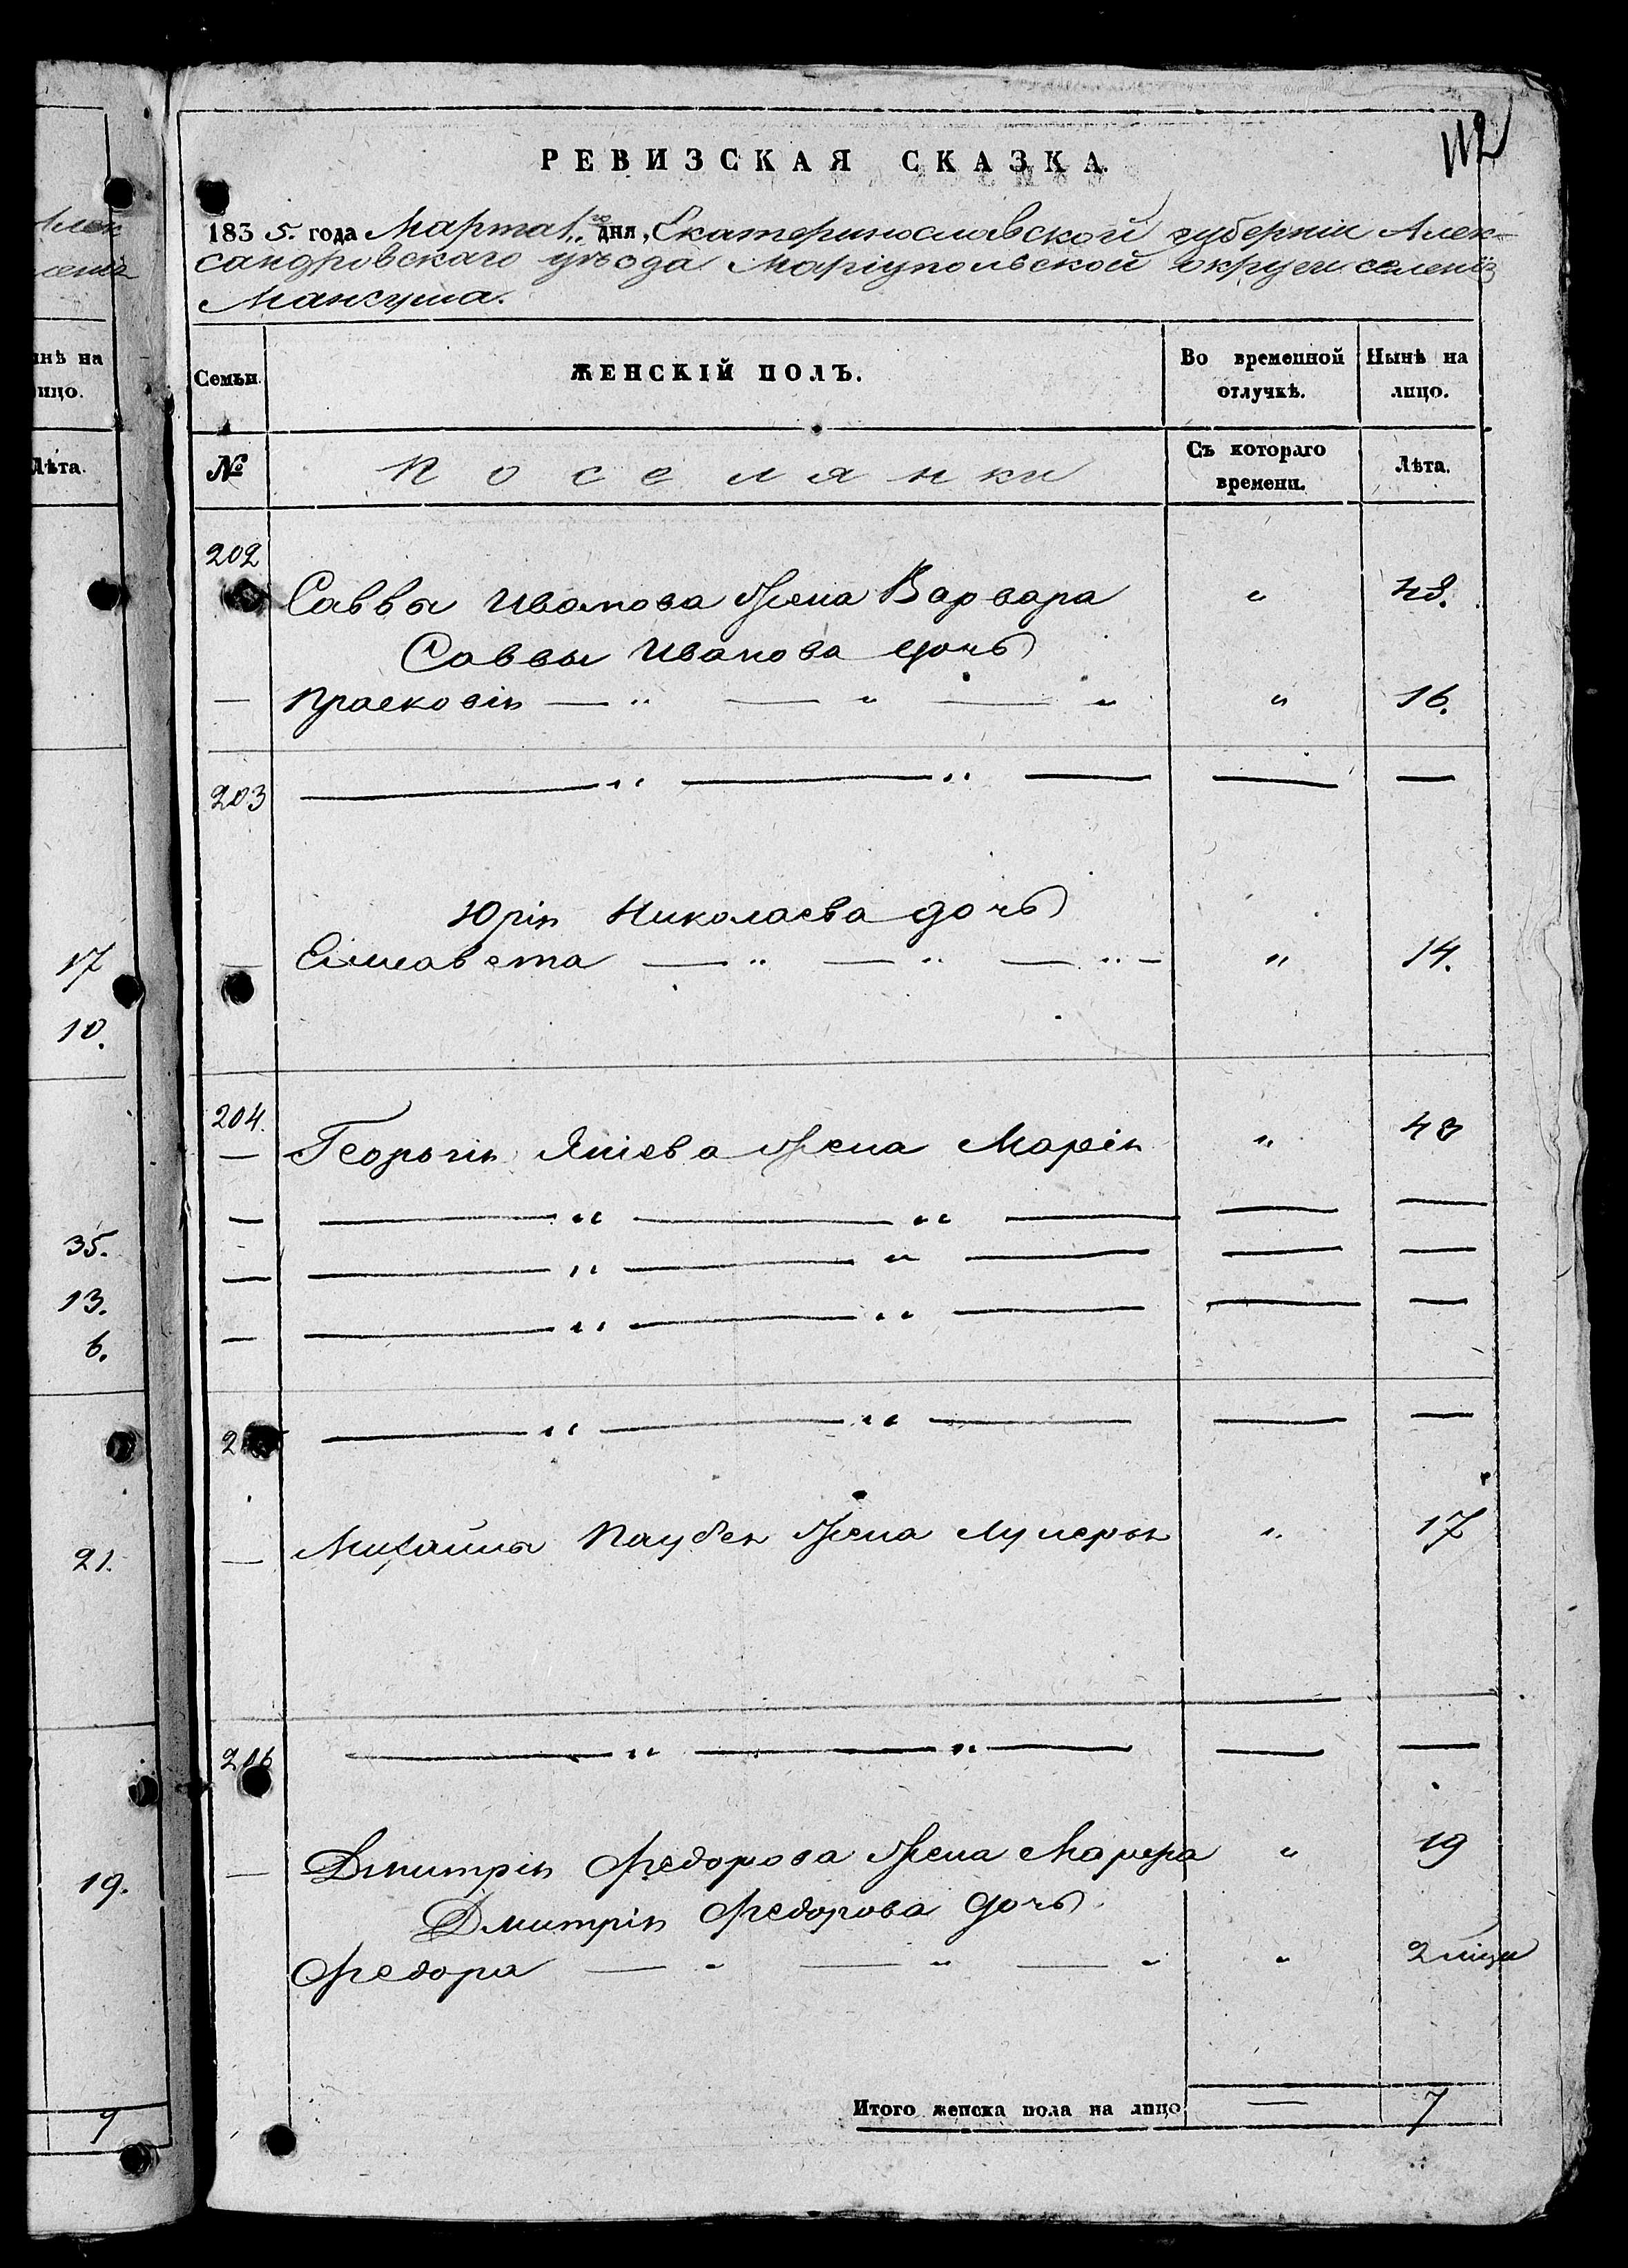 112
РЕВИЗСКАЯ СКАЗКА.
1835. года Марта 1го дня, Екатеринославской губерніи Алек-
сандровскаго уѣзда Маріупольской округи селенія
Мангуша.
Семьи. ЖЕНСКІЙ ПОЛЪ. Во временной отлучкѣ. Нынѣ на лицо.
№ Поселянки Съ котораго времени. Лѣта.
202
Саввы Иванова жена Варвара " 48.
Саввы Иванова дочь
— Прасковія — " — " — " " 16.
203 — " — " — — —
Юрія Николаева дочь
— Елисавета — " — " — " — " 14.
204.
— Георгія Яніева жена Марія " 43
— — " — " — — —
— — " — " — — —
— — " — " — — —
— " — " — — —
— Михайлы жена " 17
206 — " — " — — —
— Дмитрія Федорова жена " 19
Дмитрія Федорова дочь
Федора — " — " — " " 2 міца
Итого женска пола на лицо — 7
Алек
селенія
ынѣ на
лицо.
Лѣта.
17
10.
35.
13.
6.
21.
19.
9